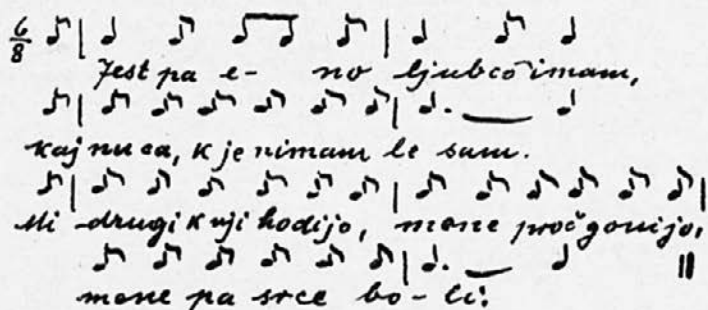 6/8
Jest pa e- no ljubco imam,
kaj nuca, k je nimam le sam.
Mi drugi k nji hodijo, mene proč gonijo,
mene pa srce bo-li.